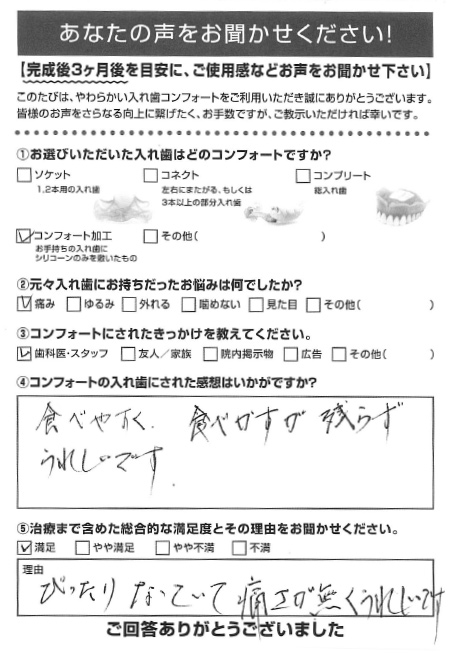 あなたの声をお聞かせください!
【完成後3ヶ月後を目安に、ご使用感などお声をお聞かせ下さい】
このたびは、やわらかい入れ歯コンフォートをご利用いただき誠にありがとうございます。
皆様のお声をさらなる向上に繋げたく、お手数ですが、ご教示いただければ幸いです。
①お選びいただいた入れ歯はどのコンフォートですか?
ソケット コネクト コンプリート
1,2本用の入れ歯 左右にまたがる、もしくは 総入れ歯
3本以上の部分入れ歯
コンフォート加工 その他( )
お手持ちの入れ歯に
シリコーンのみを敷いたもの
②元々入れ歯にお持ちだったお悩みは何でしたか?
痛み ゆるみ 外れる 噛めない 見た目 その他( )
③コンフォートにされたきっかけを教えてください。
歯科医・スタッフ 友人／家族 院内掲示物 広告 その他( )
④コンフォートの入れ歯にされた感想はいかがですか?
食べやすく、食べかすが残らず
うれしいです。
⑤治療まで含めた総合的な満足度とその理由をお聞かせください。
満足 やや満足 やや不満 不満
理由
ぴったりなっていて痛さが無くうれしいです
ご回答ありがとうございました